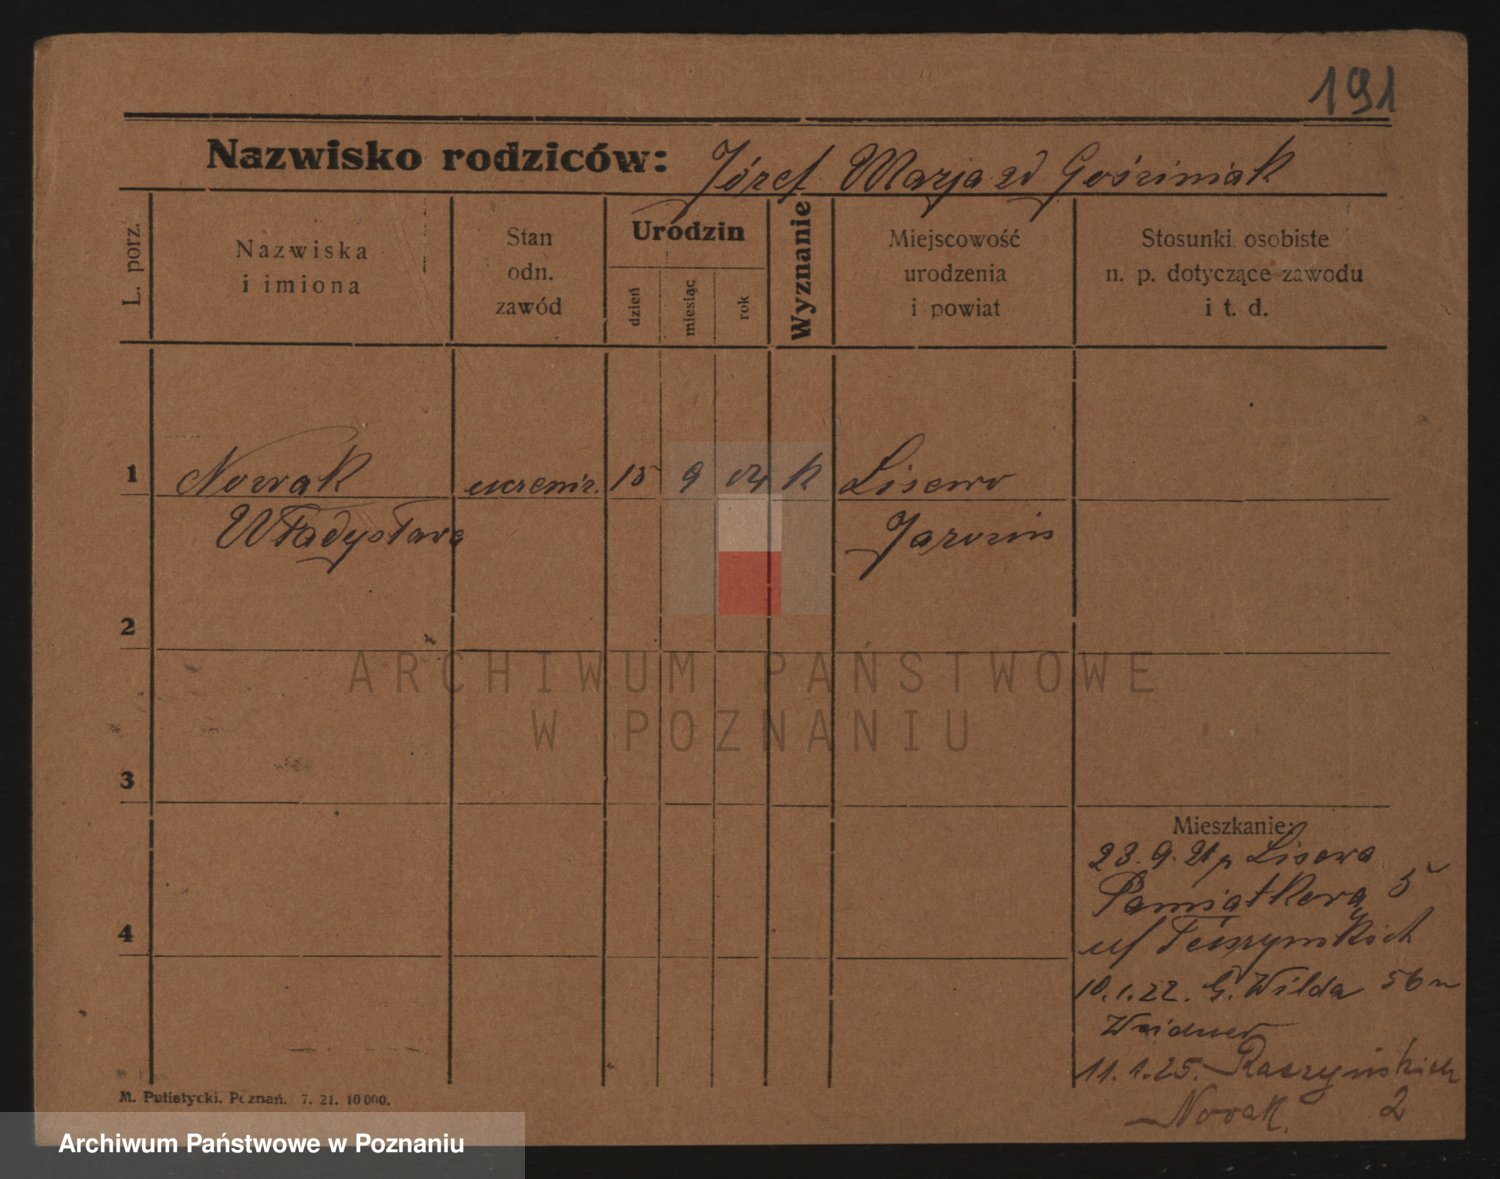 191
Nazwisko rodziców: Józef Marja zd Gościniak
L. porz.
Nazwiska
i imiona
Stan
odn.
zawód
Urodzin
dzień
miesiąc
rok
Wyznanie
Miejscowość
urodzenia
i powiat
Stosunki osobiste
n. p. dotyczące zawodu
i t. d.
1 Nowak 15 9 04 k Lisewo
Władysława Jarocin
2
ARCHIWUM PAŃSTWOWE
W POZNANIU
3
Mieszkanie:
23. 9. 21 p Lisewa
Pamiątkowa 5
4
10. 1. 22. G. Wilda 56
Weidner
11. 1. 25. Raczyńskich
Nowak. 2
M. Putiatycki. Poznań. 7. 21. 10 000.
Archiwum Państwowe w Poznaniu